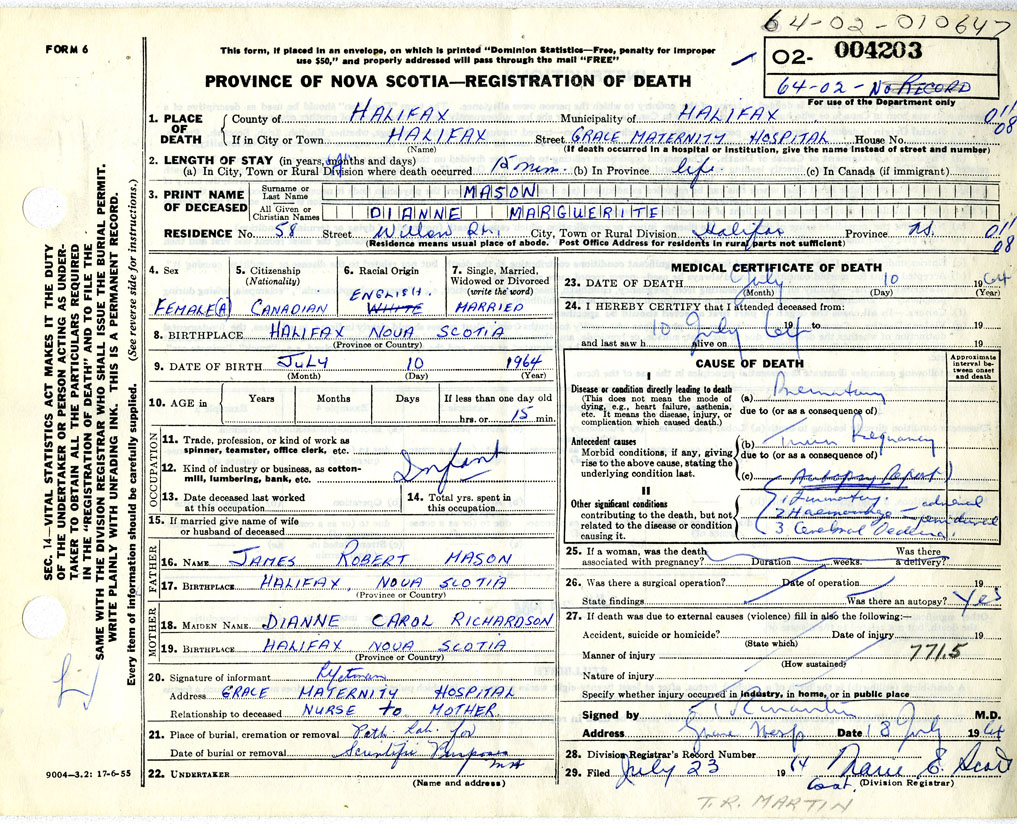 64-02-010647
FORM 6
This form, if placed in an envelope, on which is printed "Dominion Statistics—Free, penalty for improper
use $50," and properly addressed will pass through the mail "FREE"
02- 004203
PROVINCE OF NOVA SCOTIA—REGISTRATION OF DEATH
64-02- No RECORD
For use of the Department only
1. PLACE OF DEATH County of HALIFAX Municipality of HALIFAX 011
08
If in City or Town HALIFAX Street GRACE MATERNITY HOSPITAL House No.
(Name) (If death occurred in a hospital or institution, give the name instead of street and number)
2. LENGTH OF STAY (in years, months and days)
(a) In City, Town or Rural Division where death occurred 15 min. (b) In Province life. (c) In Canada (if immigrant)
3. PRINT NAME OF DECEASED Surname or Last Name MASON
All Given or Christian Names DIANNE MARGUERITE
RESIDENCE No. 58 Street Willow City, Town or Rural Division Halifax Province N.S. 011
08
(Residence means usual place of abode. Post Office Address for residents in rural parts not sufficient)
4. Sex 5. Citizenship (Nationality) 6. Racial Origin 7. Single, Married, Widowed or Divorced (write the word)
FEMALE(A) CANADIAN ENGLISH. WHITE MARRIED
8. BIRTHPLACE HALIFAX NOVA SCOTIA
(Province or Country)
9. DATE OF BIRTH JULY 10 1964
(Month) (Day) (Year)
10. AGE in Years Months Days If less than one day old
hrs. or 15 min.
OCCUPATION
11. Trade, profession, or kind of work as
spinner, teamster, office clerk, etc.
12. Kind of industry or business, as cotton-
mill, lumbering, bank, etc. Infant
13. Date deceased last worked at this occupation 14. Total yrs. spent in this occupation
15. If married give name of wife
or husband of deceased
FATHER
16. NAME JAMES ROBERT MASON
17. BIRTHPLACE HALIFAX NOVA SCOTIA
(Province or Country)
MOTHER
18. MAIDEN NAME DIANNE CAROL RICHARDSON
19. BIRTHPLACE HALIFAX NOVA SCOTIA
(Province or Country)
20. Signature of informant
Address GRACE MATERNITY HOSPITAL
Relationship to deceased NURSE to MOTHER
21. Place of burial, cremation or removal Path. Lab. for
Date of burial or removal Scientific Purposes
22. UNDERTAKER
(Name and address)
MEDICAL CERTIFICATE OF DEATH
23. DATE OF DEATH July 10 1964
(Month) (Day) (Year)
24. I HEREBY CERTIFY that I attended deceased from:
10 July 64 19 to 19
and last saw h alive on 19
CAUSE OF DEATH
Approximate interval between onset and death
I
Disease or condition directly leading to death
(This does not mean the mode of
dying, e.g., heart failure, asthenia,
etc. It means the disease, injury, or
complication which caused death.)
(a) Prematurity
due to (or as a consequence of)
Antecedent causes
Morbid conditions, if any, giving
rise to the above cause, stating the
underlying condition last.
(b) Twin Pregnancy
due to (or as a consequence of)
(c) Autopsy Report
II
Other significant conditions
contributing to the death, but not
related to the disease or condition
causing it.
1 Immaturity.
2 Haemorrhage — adrenal
3 Cerebral Oedema.
25. If a woman, was the death
associated with pregnancy? Duration weeks. Was there a delivery?
26. Was there a surgical operation? Date of operation 19
State findings Was there an autopsy? Yes
27. If death was due to external causes (violence) fill in also the following:—
Accident, suicide or homicide? Date of injury 19
(State which)
Manner of injury 7715
(How sustained)
Nature of injury
Specify whether injury occurred in industry, in home, or in public place
Signed by M.D.
Address Grace Hosp Date 18 July 1964
28. Division Registrar's Record Number
29. Filed July 23 1964 Marie E. Scott
(Division Registrar)
T.R. MARTIN
SEC. 14—VITAL STATISTICS ACT MAKES IT THE DUTY
OF THE UNDERTAKER OR PERSON ACTING AS UNDER-
TAKER TO OBTAIN ALL THE PARTICULARS REQUIRED
IN THE "REGISTRATION OF DEATH" AND TO FILE THE
SAME WITH THE DIVISION REGISTRAR WHO SHALL ISSUE THE BURIAL PERMIT.
WRITE PLAINLY WITH UNFADING INK. THIS IS A PERMANENT RECORD.
Every item of information should be carefully supplied. (See reverse side for instructions.)
9004—3.2: 17-6-55